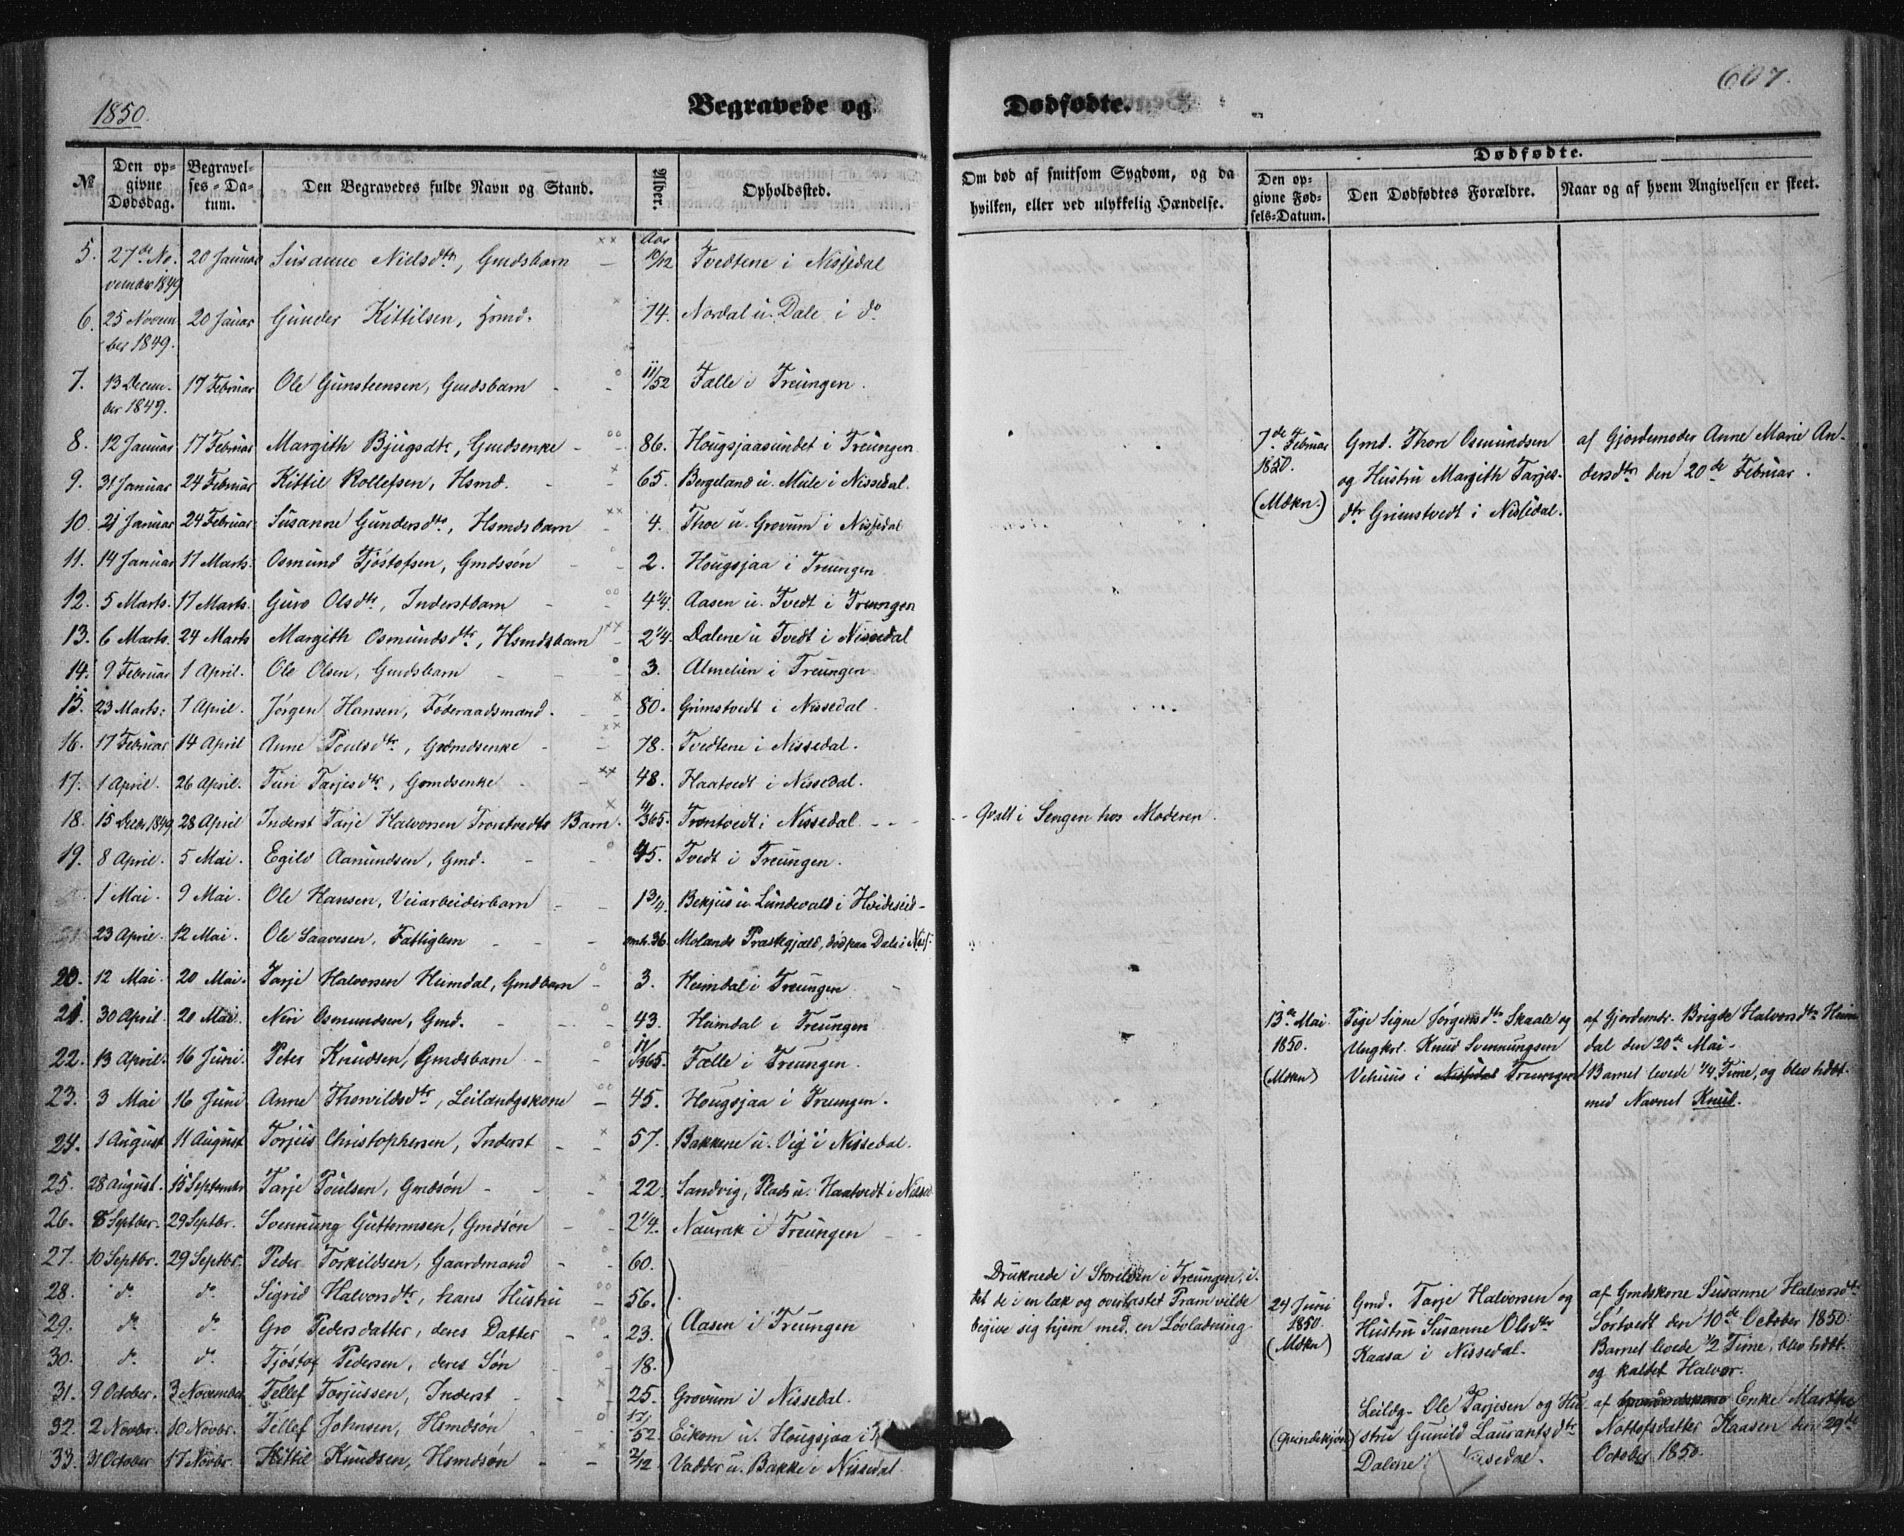 1850.
Begravede og Dødfødte.
607.
Dødfødte.
№ Den opgivne Dødsdag. Begravelses-Datum. Den Begravedes fulde Navn og Stand. Alder. Opholdssted. Om død af smitsom Sygdom, og da hvilken, eller ved ulykkelig Hændelse. Den opgivne Fødsels-Datum. Den Dødfødtes Forældre. Naar og af hvem Angivelsen er skeet.
Aar
5. 27de November 1849 20 Januar Susanne Nielsdtr, Gmdsbarn – 10/12 Tvedtene i Nissedal
6. 25 November 1849. 20 Januar Gunder Kittilsen, Hsmd. 74. Nordal u. Dale i do
7. 13 December 1849. 17 Februar Ole Gunsteensen, Gmdsbarn – – 11/52 Fælle i Treungen.
8. 12 Januar 17 Februar Margith Bjugsdtr, Gmdsenke – – 86. Hougsjaasundet i Treungen
9. 31 Januar 24 Februar Kittil Rollefsen, Hsmd. – 65. Bergeland u. Mule i Nissedal.
10. 21 Januar 24 Februar Susanne Gundersdtr, Hsmdsbarn – 4. Thoe u. Grovum i Nissedal
11. 14 Januar 17 Marts. Osmund Tjøstofsen, Gmdssøn – – 2. Hougsjaa i Treungen
12. 5 Marts. 17 Marts. Guro Olsdtr, Inderstbarn – – 4 1/4. Aasen u. Tvedt i Treungen
13. 6 Marts. 24 Marts Margith Osmundsdtr, Hsmdsbarn – 2 1/4. Dalene u Tvedt i Nissedal
14. 9 Februar 1 April. Ole Olsen, Gmdsbarn – – 3. Almelien i Treungen
15. 23 Marts. 1 April. Jørgen Hansen, Føderaadsmand. – – 80. Grimstvedt i Nissedal.
16. 17 Februar 14 April Anne Poulsdtr, Grdmdsenke – – 78. Tvedtene i Nissedal.
17. 1 April. 26 April. Turi Tarjesdtr, Grmdsenke – – 48. Haatvedt i Nissedal.
18. 15 Decbr 1849 28 April Inderst Tarje Halvorsen Trontvedts Barn. 4/365. Trontvedt i Nissedal – – – – Qvalt i Sengen hos Moderen.
19. 8 April. 5 Mai. Egild Aamundsen, Gmd. – – 45. Tvedt i Treungen.
1 Mai 9 Mai. Ole Hansen, Veiarbeiderbarn – – 1 3/4. Bekjus u. Lundevald i Hvideseid –
23 April. 12 Mai. Ole Saavesen, Fattiglem – – omtr. 36. Molands Præstegjæld, død paa Dale i Niss.
20. 12 Mai 20 Mai. Tarje Halvorsen Heimdal, Gmdbarn – 3. Heimdal i Treungen
21. 30 April. 20 Mai. Neri Osmundsen, Gmd. – – 43. Heimdal i Treungen
22. 13 April. 16 Juni. Peter Knudsen, Gmdsbarn – – 11/365. Fælle i Treungen.
23. 3 Mai 16 Juni Anne Thovildsdtr, Leilændgskone – 45. Hougsjaa i Treungen.
24. 1 August 11 August Torjus Christophersen, Inderst – 57. Bakkene u. Vig i Nissedal.
25. 28 August. 15 September Tarje Poulsen, Gmdsøn – – 22. Sandvig, Plads u. Haatvedt i Nissed
26. 8 Septber. 29 Septbr. Svennung Guttormsen, Gmdsøn – – 2 1/4. Naurak i Treungen
27. 10 Septbr. 29 Septbr. Peder Torkildsen, Gaardmand – – 60.
28. do do Sigrid Halvorsdtr, hans Hustru – 56.
29. do do Gro Pedersdatter, deres Datter – – 23. Aasen i Treungen
30. do do Tjøstof Pedersen, deres Søn – – 18.
Druknede i Storelven i Treungen, i
det de i en læk og overlastet Pram vilde
begive sig hjem med en Løvladning.
31. 9 October. 3 November Tellef Torjussen, Inderst – – 25. Grovum i Nissedal.
32. 2 Novbr. 10 Novbr. Tellef Johnsen, Hsmdsøn – /52. Eikom u. Hougsjaa i
33. 31 October 17 Novbr. Kittil Knudsen, Hsmdsøn – – 2/12 Vadder u. Bakke i Nissedal.
7de Februar 1850. (Mdkn.)
Gmd. Thore Osmundsen
og Hustru Margith Tarjes-
dtr Grimstvedt i Nissedal.
af Gjordemoder Anne Marie An-
dersdtr den 20de Februar.
13de Mai 1850. (Mdkn)
Pige Signe Jørgensdtr Skaale og
Ungkrl. Knud Svennungsen
Vehuus i Nissedal Treungen
af Gjordemr. Brigde Halvorsdtr Heim
dal den 20de Mai –
Barnet levede 1/4 Time, og blev hdøt.
med Navnet Knud.
24 Juni 1850. (Mdkn)
Gmd. Tarje Halvorsen og
Hustru Susanne Olsdtr
Kaasa i Nissedal.
af Gmdskone Susanne Halvorsdtr
Sørtvedt den 10de October 1850.
Barnet levede 1/2 Time, blev hdøt.
og kaldet Halvor.
(Qvindekjøn)
Leildg. Ole Tarjesen og Hu-
stru Gunild Laurantsdtr
Dalene i Nissedal.
af Enke Marthe
Nottofsdatter Kaasen den 29de
October 1850.